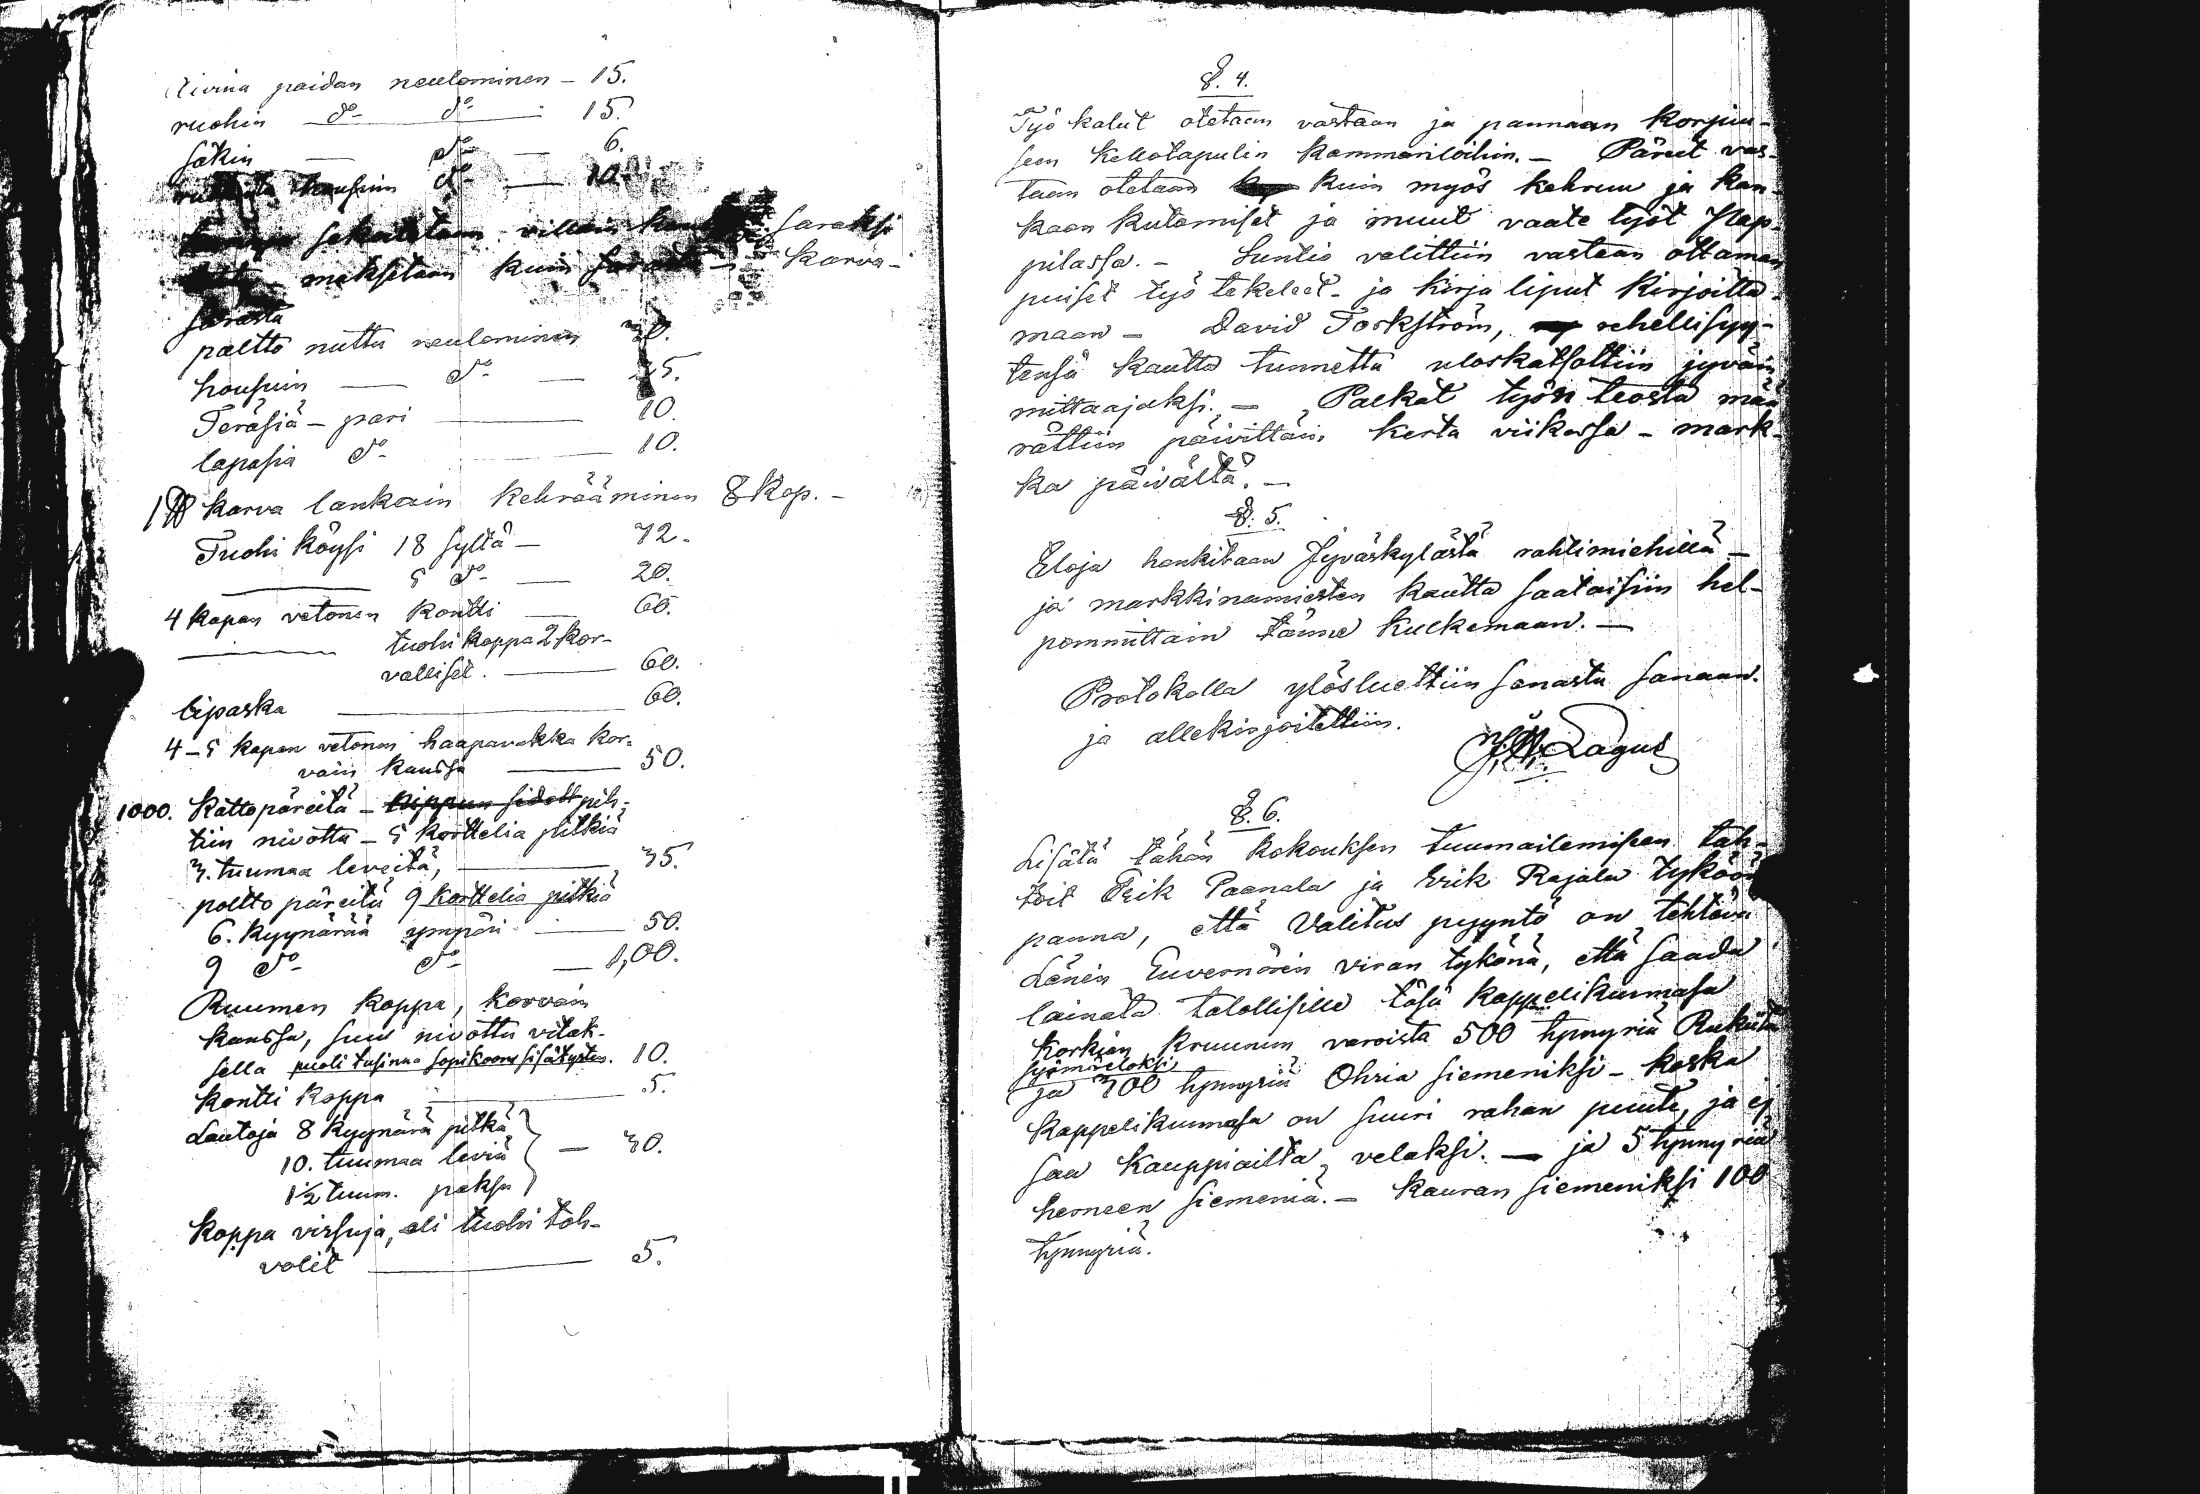 paidan neulominen – 15.
ruohin — d:o — d:o — 15.
säkin — d:o — 6.
housuin d:o — 10.
sekaletaan villain saraksi
maksetaan kuin karva-
sarasta
paltto nuttu neulominen 30.
housuin — d:o — 25.
Teräsiä – pari — 10.
lapasia d:o — 10.
1 ℔ karva lankain kehrääminen 8 Kop. –
Tuohi köysi 18 syltä – 72.
— 5 d:o — 20.
4 kapan vetonen kontti — 60.
— tuohi koppa 2 kor-
valliset. — 60.
lipaska — 60.
4–5 kapan vetonen haapavakka kor-
vain kanssa — 50.
1000. Kattopäreitä – nippun sidott pih-
tiin nivottu – 5 korttelia pitkiä
3. tuumaa leveitä, — 35.
poltto päreitä 9 korttelia pitkiä
6. kyynärää ympäri — 50.
9 d:o d:o — 1,00.
Ruumen koppa, korvain
kanssa, suu nivottu vitak-
sella puoli tusinaa sopikoon sisätysten. 10.
kontti koppa — 5.
Lautoja 8 kyynärä pitkä
10. tuumaa leviä — 30.
1½ tuum. paksu
Koppa virsuja, eli tuohi toh-
volit — 5.
§. 4.
Työ kalut otetaan vastaan ja pannaan korjuu-
seen kellotapulin kammariloihin. – Päreet vas-
taan otetaan kuin myös kehruu ja kan-
kaan kutomiset ja muut vaate työt Pap-
pilassa. – Suntio valittiin vastaan ottamaan
puiset työ tekeleet – ja kirja liput kirjoitta-
maan – David Forkström, rehellisyy-
tensä kautta tunnettu uloskatsottiin jyväin
mittaajaksi. – Palkat työn teosta mää-
rättiin päivittäin kerta viikossa – mark-
ka päivältä. –
§. 5.
Eloja hankitaan Jyväskylästä rahtimiehillä –
ja markkinamiesten kautta saataisiin hel-
pommittain tänne kulkemaan. –
Protokolla ylösluettiin sanasta sanaan.
ja allekirjoitettiin.
Lagus
§. 6.
Lisätä tähän kokouksen tuumailemisen tah-
toit Erik Paanala ja Erik Rajala tyköön
panna, että Valitus pyyntö on tehtävä
Länin Guvernörin viran tykönä, että saada
lainata talollisille täsä kappelikunnasa
korkian kruunun varoista 500 tynnyriä Rukiita
syömäveloksi
ja 300 tynnyriä Ohria siemeniksi – koska
kappelikunnasa on suuri rahan puute, ja ej
saa kauppiailta velaksi. — ja 5 tynnyriä
herneen siemeniä. – kauran siemeniksi 100
tynnyriä.